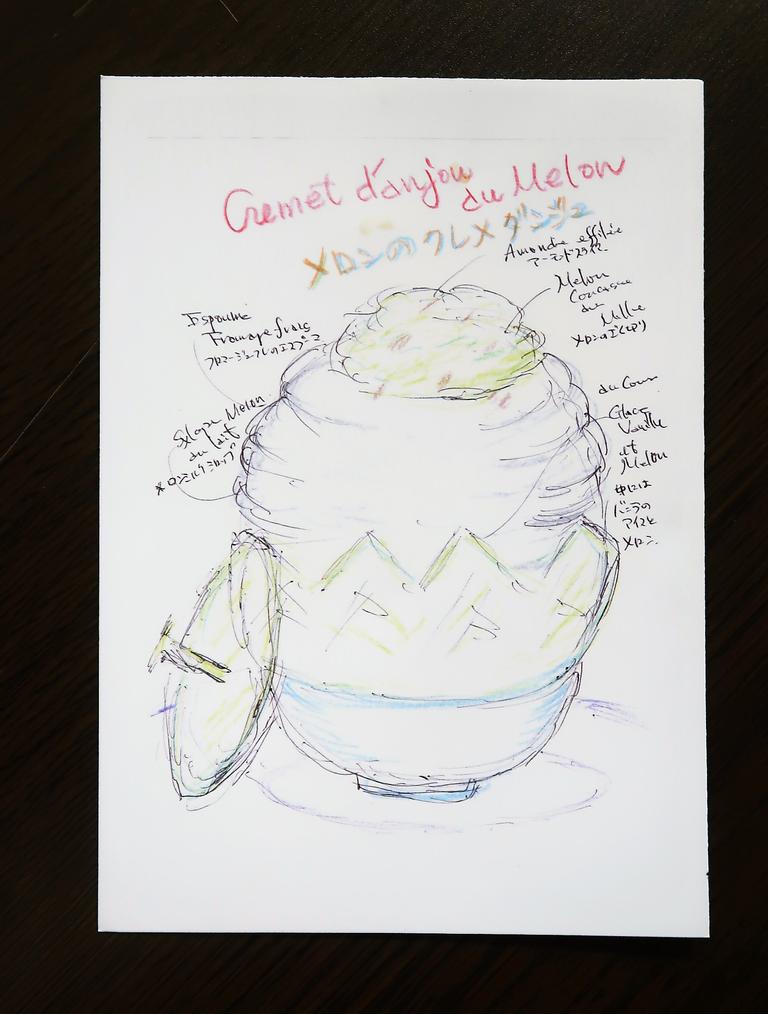 Cremet d'anjou
du Melon
メロンのクレメダンジュ
Amande effilée
アーモンドスライス
Melon
Concasse
au
メロンの
Espouma
Fromage frais
フロマージュフレのエスプーマ
Sirop Melon
au lait
メロンミルクシロップ
au Coeur
Glace
Vanille
et
Melon
中には
バニラの
アイスと
メロン